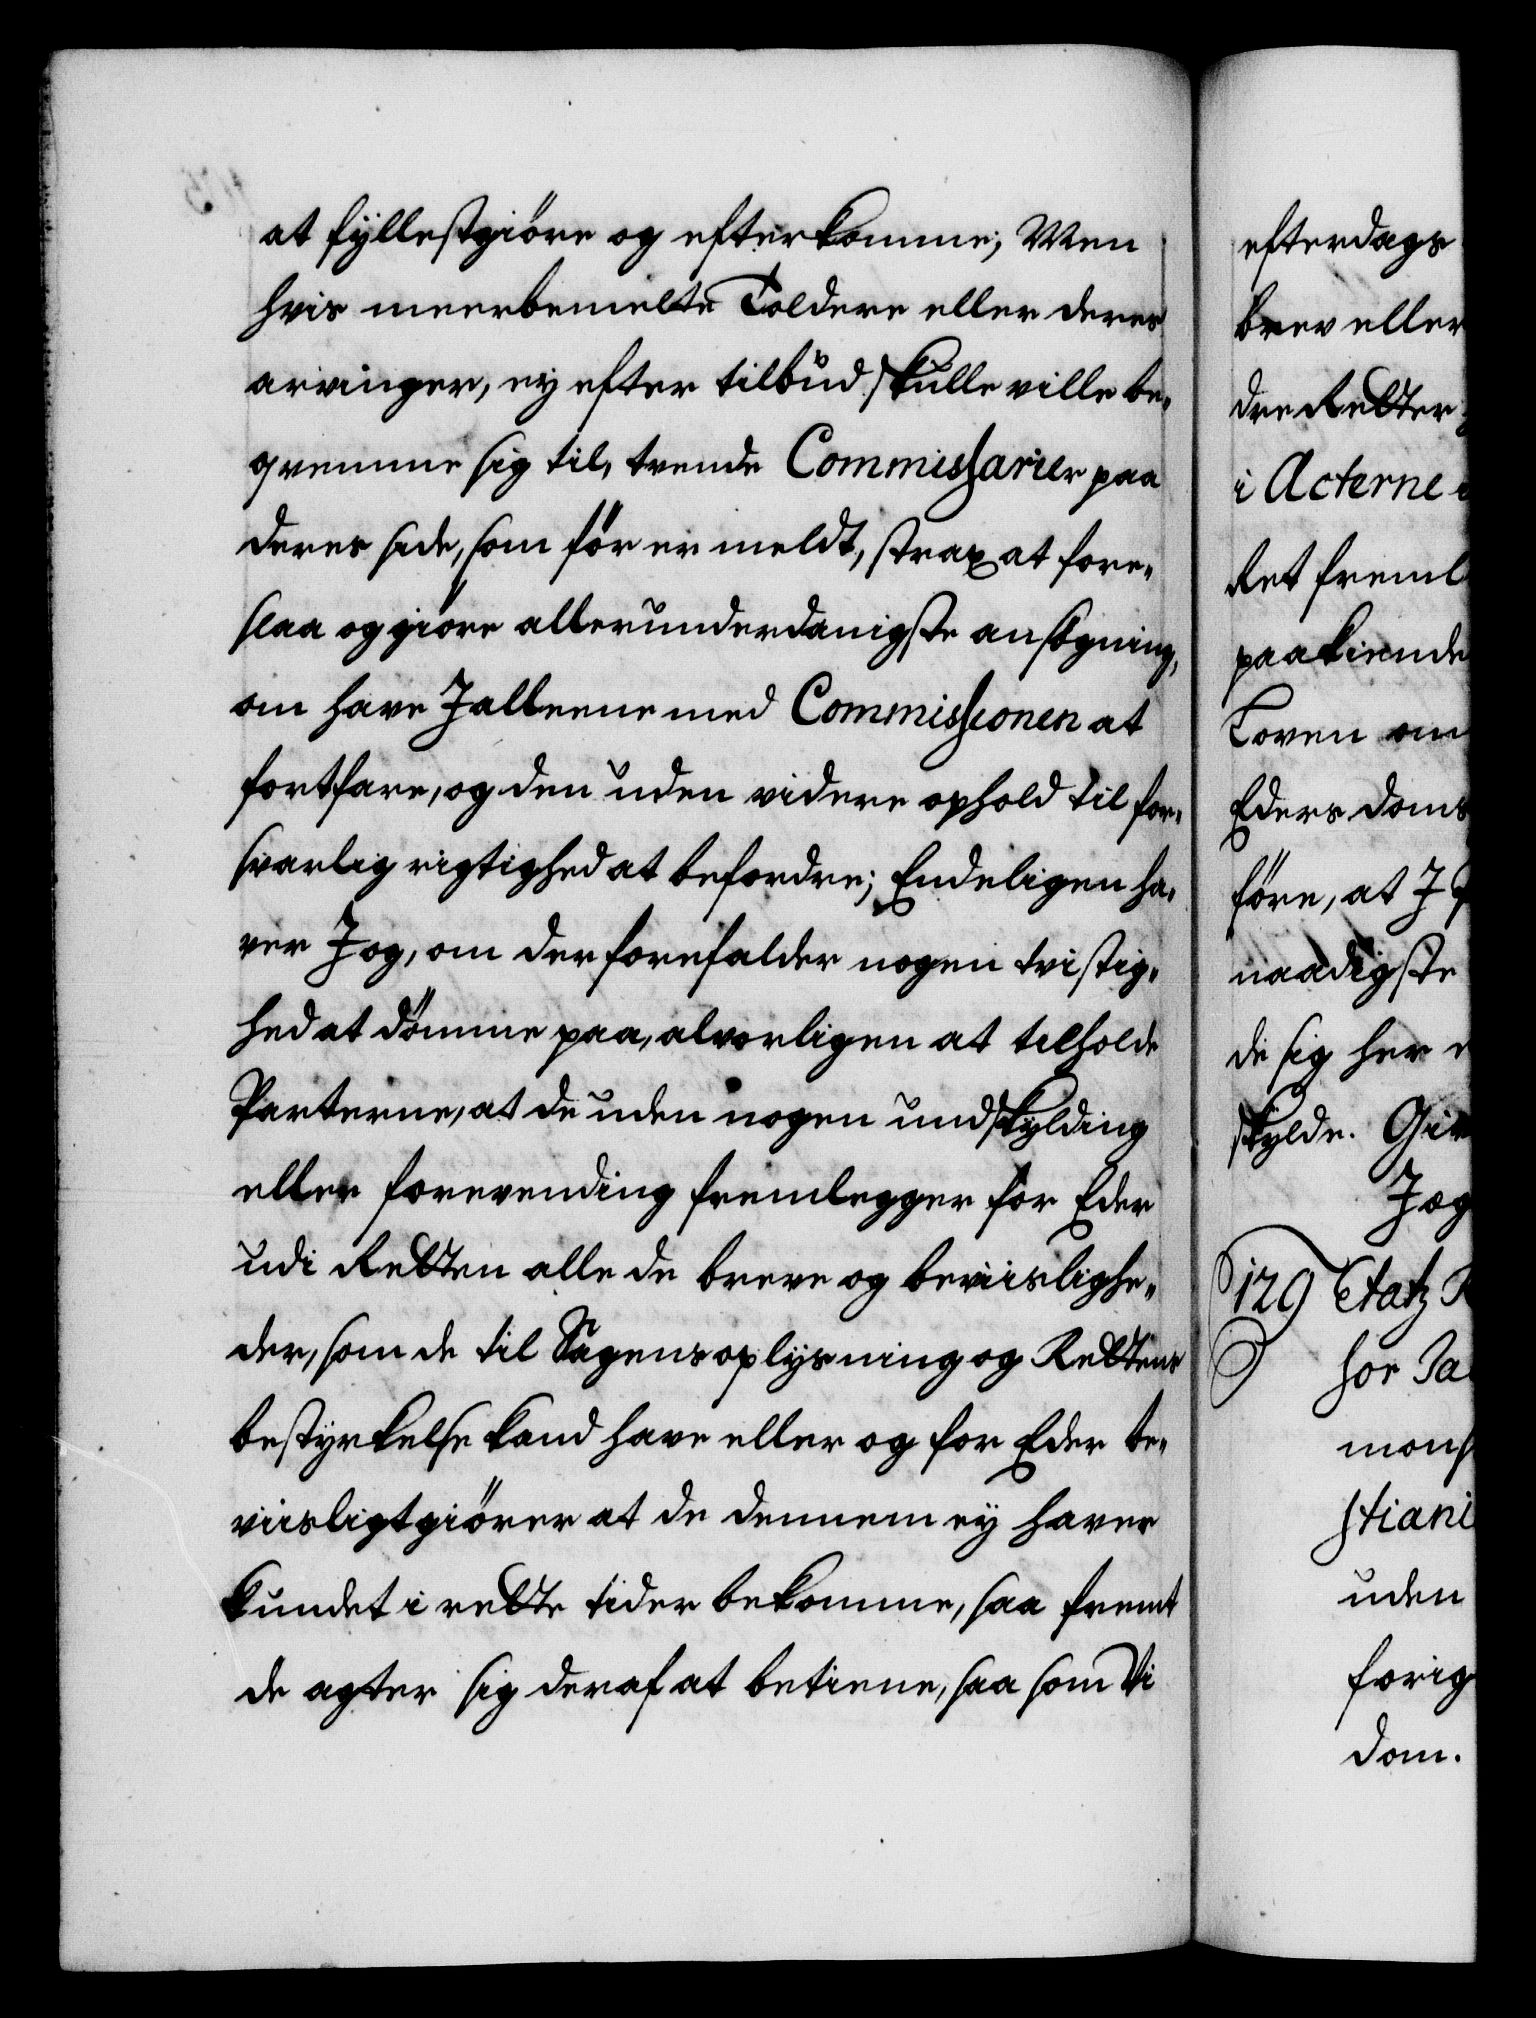 at fyllestgiöre og efterkomme; Men
hvis meerbemelte Toldere eller deres
arvinger, ey efter tilbud skulle ville be-
qvemme sig til, trende Commissarier paa
deres side, som för er meldt, strax at fore-
slaa og giöre allerunderdanigste ansögning,
om have I alleene med Commissionen at
fortfare, og den uden videre ophold til for-
svarlig rigtighed at befordre; Endeligen ha-
ver I og, om der forefalder nogen tvistig-
hed at dömme paa, alvorligen at tilholde
Parterne, at de uden nogen undskylding
eller forevending fremlegger for Eder
udi Retten alle de breve og beviislighe-
der, som de til Sagens oplysning og Rettens
bestyrkelse kand have eller og for Eder be-
viisligt giörer at de dennem ey haver
kundet i rette tider bekomme, saa fremt
de agter sig deraf at betiene, saa som Vi
efterdags
brev eller
dre Retter
i Acterne
Ret freml
paakiende
Loven om
Eders doms
före, at I
naadigste
de sig her
skylde. Giv
Jæg
129 Etatz R
for Ja
mons
stiani
uden
forig
dom.